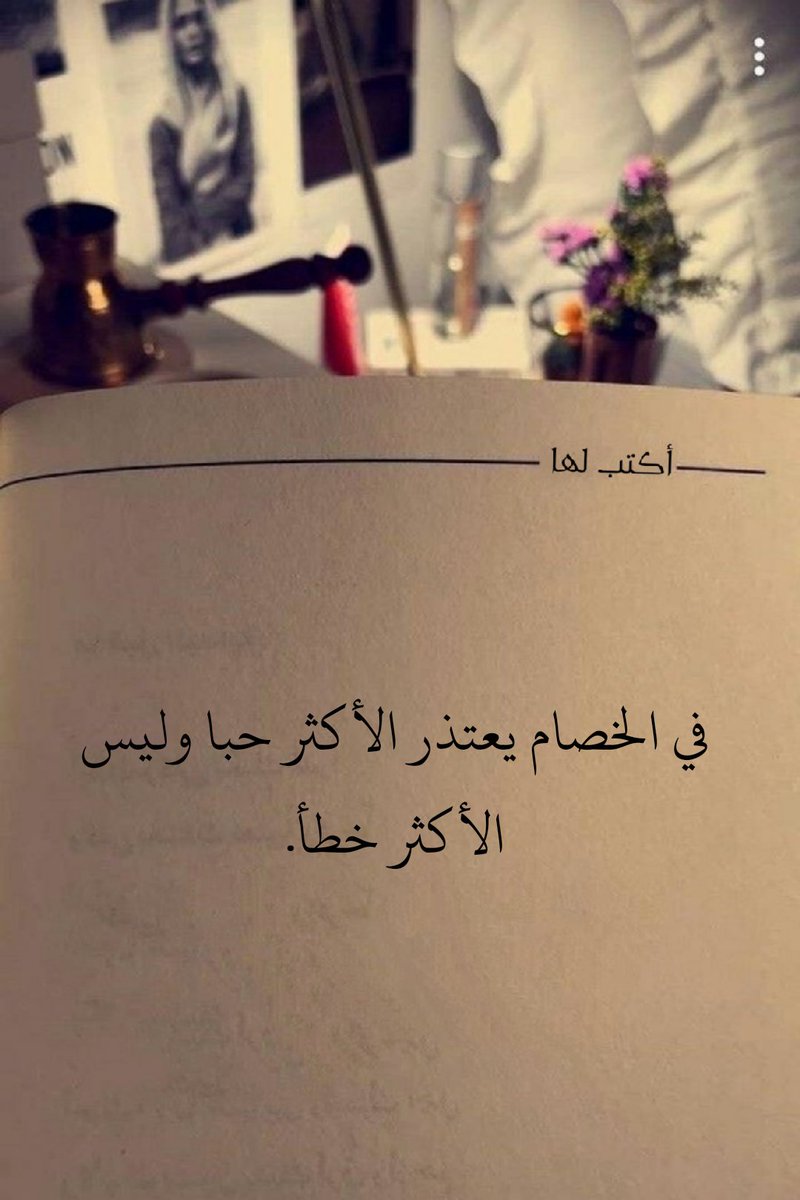 أكتب لها
في الخصام يعتذر الأكثر حبا وليس
الأكثر خطأ.